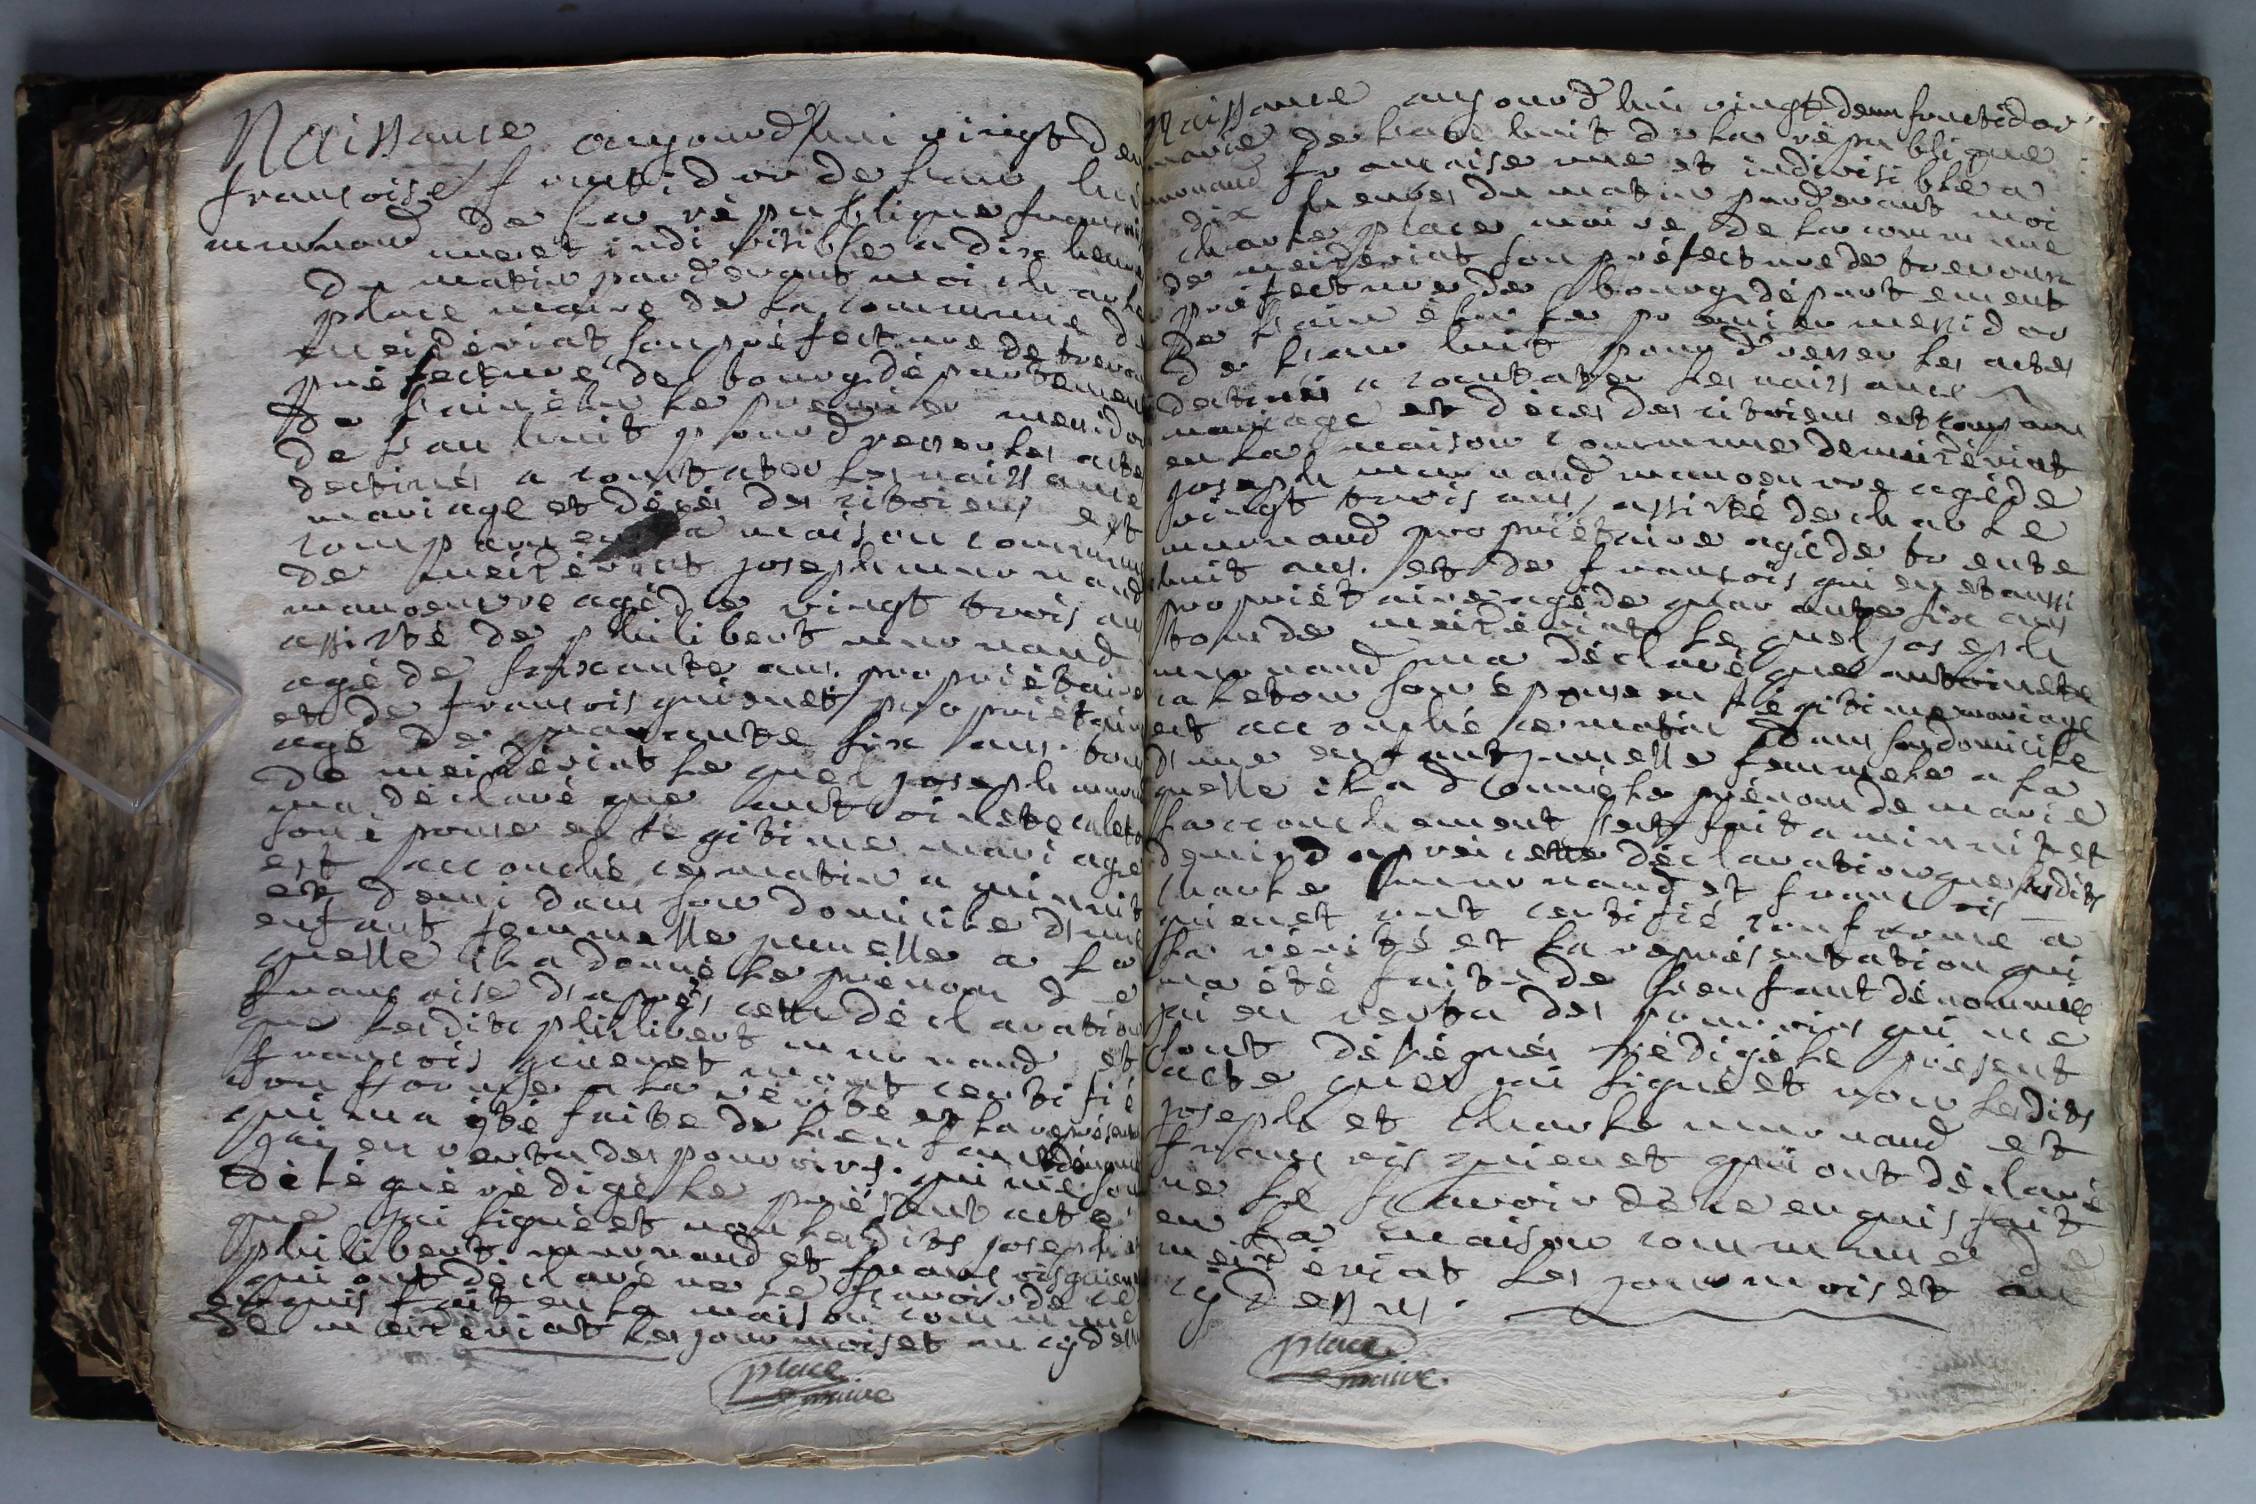 Naissance aujourd'hui vingt deu
françoise fructidor de lan hui
murnand de la république françai
une et indivisible a dix heure
du matin pard'evant moi charle
place maire de la commune de
meizériat sou préfecture de trevou
préfecture de bourg département
de lain élu le premier messidor
de lan huit pour dresser les acte
destinés a constater les naissance
mariage et décés des citoiens est
comparu en la maison commune
de meizériat joseph murnand
manoeuvre agé de vingt trois an
assisté de philibert murnand
agé de soixante ans. propriétaire
et de françois guienet propriétaire
agé de quarante six ans. tou
de meizériat le quel joseph murn
ma déclaré que antoinete caleto
son épouse en légitime mariage
est accouché ce matin a minuit
et demi dans son domicile d'une
enfant femmelle jumelle a la
quelle il a donné le prénom de
françoise d'après cette déclaration
que lesdits philibert murnand et
françois guienet mont certifié
conforme a la vérité et la représent
qui ma été faite de lenfant dénomm
jai en vertu des pouvoirs. qui me son
délégué rédigé le présent acte
que jai signé et non lesdits joseph
philibert murnand et françois guien
qui ont déclaré ne le sçavoir de ce
enquis fait en la maison commune
de meizériat les jour mois et an cy dess
place
maire
Naissance aujourd'hui vingt deux fructidor
marie de lan huit de la république
murnand françaises une et indivisible a
dix heures du matin pard'evant moi
charle place maire de la commune
de meizériat sou préfecture de trevoux
préfecture de bourg département
de lain élu le premier messidor
de lan huit pour dresser les actes
destinés a constater les naissances
mariage et décès des citoiens est comparu
en la maison commune de meizériat
joseph murnand manoeuvre agé de
vingt trois ans, assisté de charle
murnand propriétaire agé de trente
huit ans. et de françois guienet aussi
propriétaire agé de quarante six ans
tous de meizériat le quel joseph
murnand ma déclaré que antoinete
caleton son épouse en légitime mariage
est accouché ce matin dans son domicile
d'une enfant jumelle femmele a la
quelle il a donné le prénom de marie
laccouchement sest fait a minuit et
demi d'après cette déclaration que lesdits
charle murnand et françois
guienet ont certifié conforme a
la vérité et la représentation qui
ma été faite de lenfant dénommée
jai en vertu des pouvoirs qui me
sont délégués rédigé le présent
acte que jai signé et non lesdits
joseph et charle murnand et
françois guienet qui ont déclaré
ne le sçavoir de ce enquis fait
en la maison commune de
meizériat les jour mois et an
cy dessus.
place
maire.